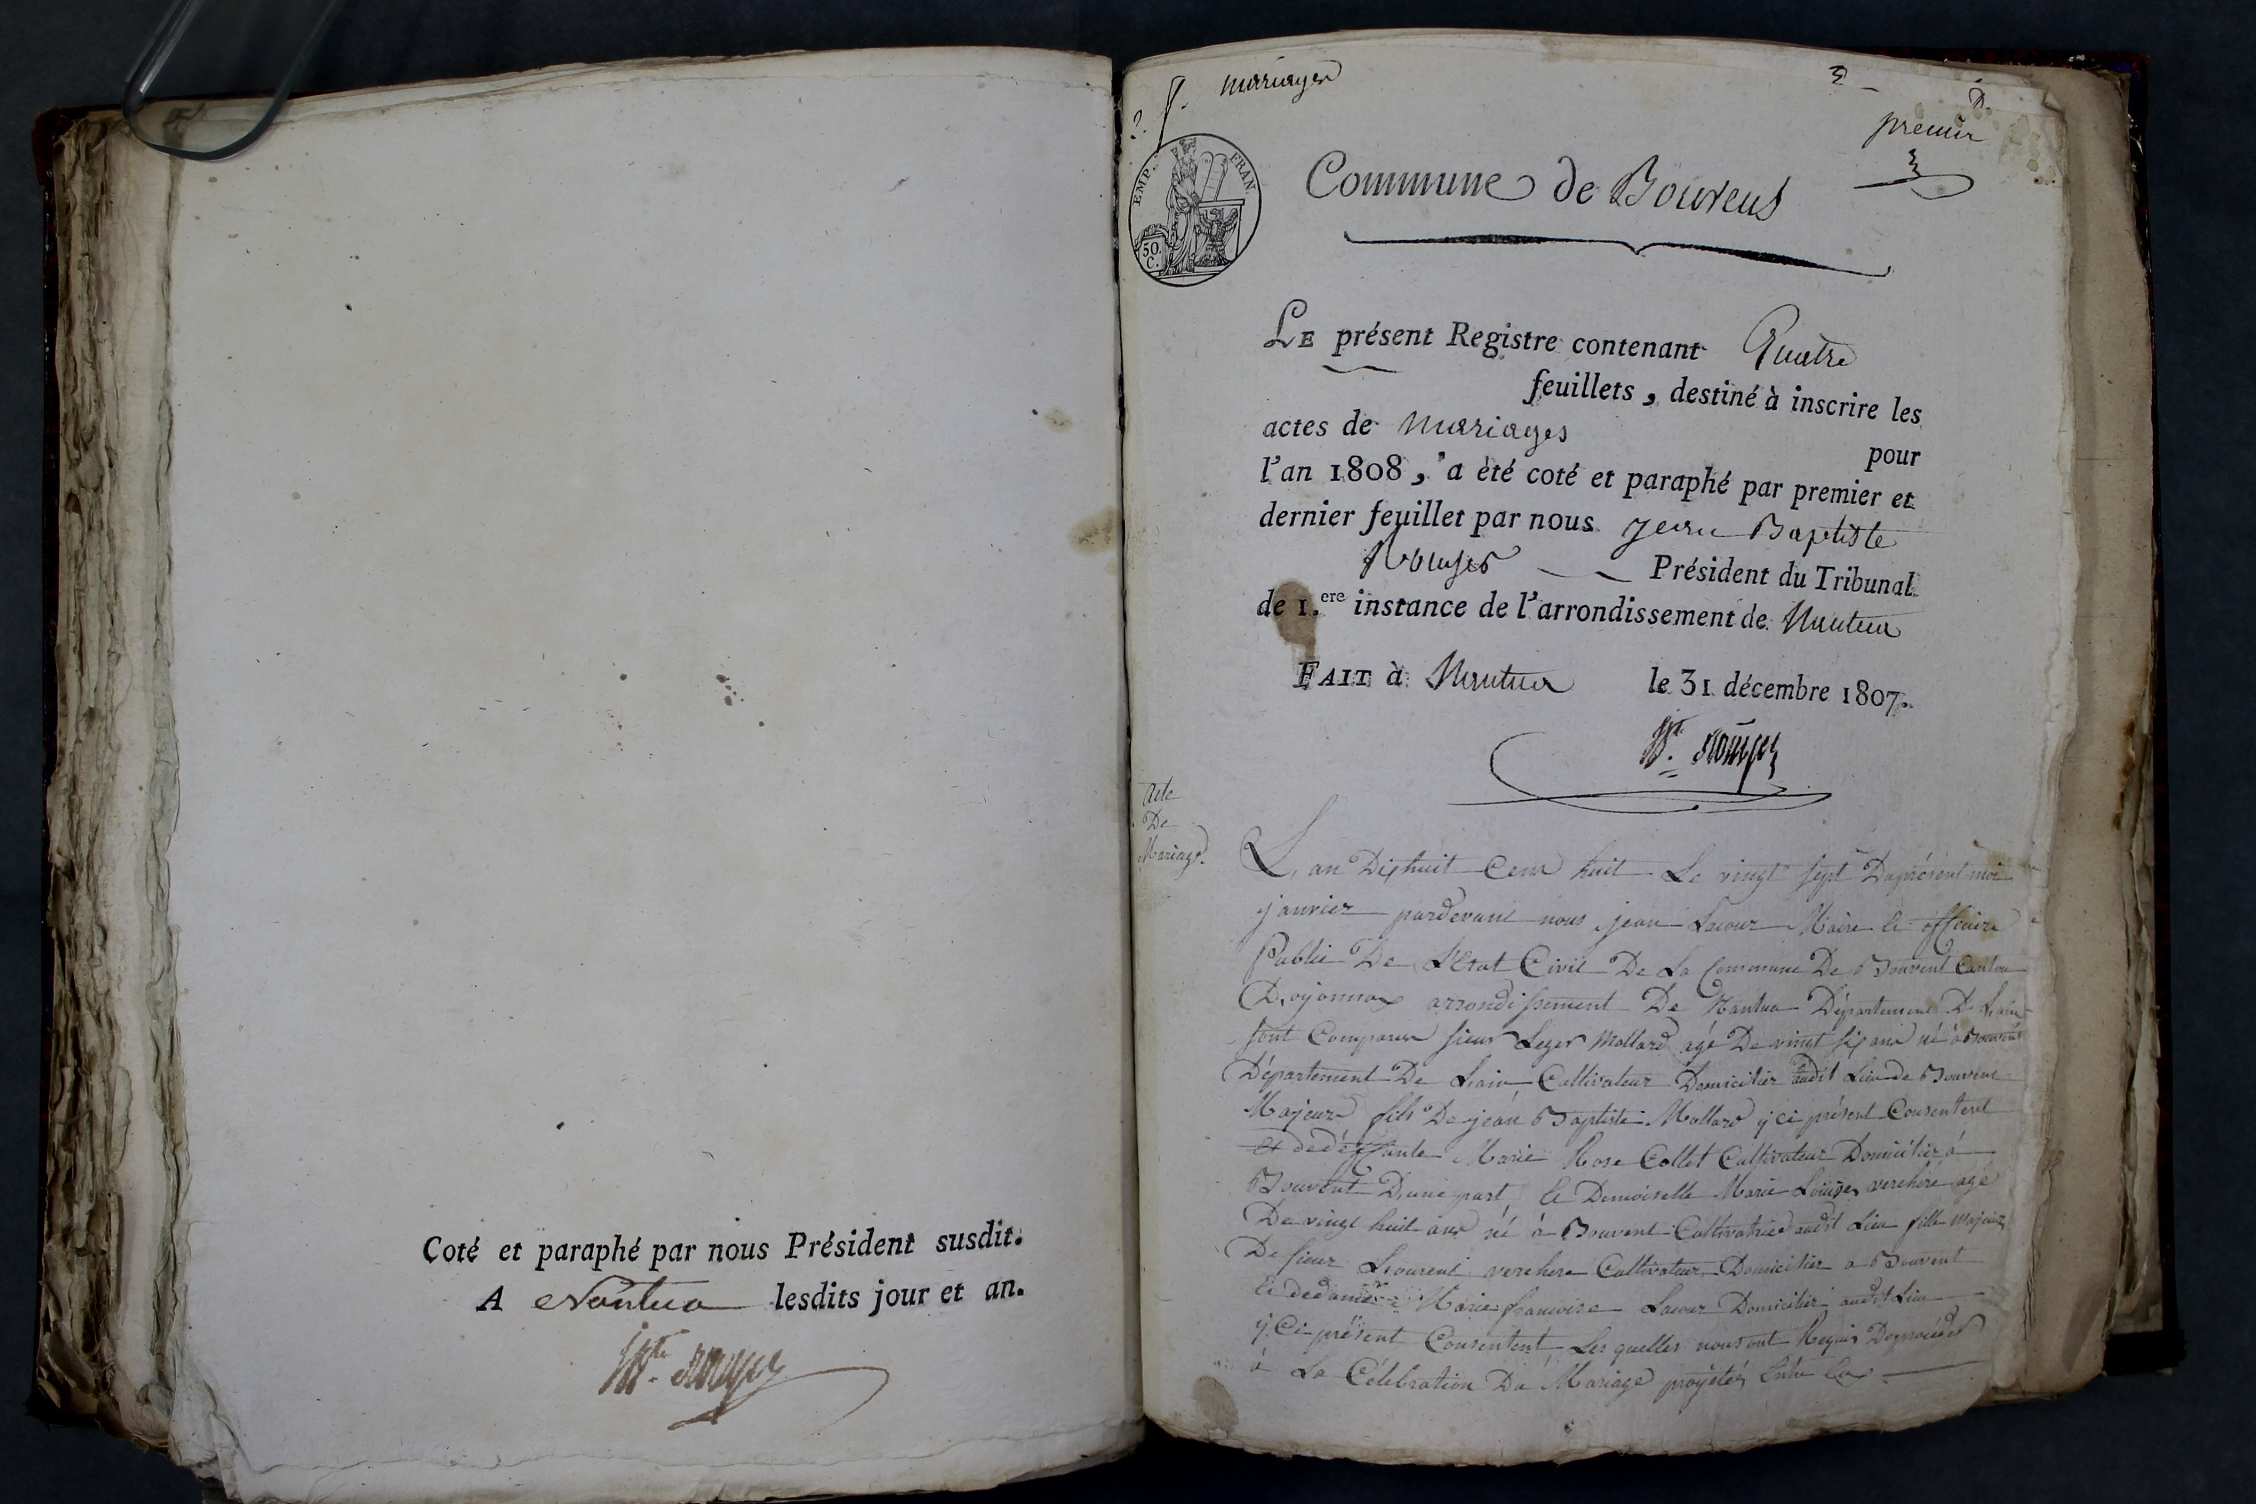 Coté et paraphé par nous Président susdit.
A Nantua lesdits jour et an.
mariages
premier
EMP. FRAN.
50. C.
Commune de Bouvens
LE présent Registre contenant Quatre
feuillets, destiné à inscrire les
actes de Mariages
pour
l'an 1808, a été coté et paraphé par premier et
dernier feuillet par nous Jean Baptiste
Président du Tribunal
de 1.ere instance de l'arrondissement de Nantua
FAIT à Nantua le 31 décembre 1807.
Acte
De
Mariage.
L'an Dixhuit Cent huit Le vingt sept Duprésent moi
janvier pardevant nous jean Lacour Maire et officier
Public De L'Etat Civil De La Commune De Bouvent Canton
D'oyonnax arrondissement De Nantua Département De Lain
sont Comparu sieur Leger Mollard agé De vingt six ans né à Bouvent
Département De Lain Cultivateur Domicilier audit Lieu de Bouvent
Majeur fils De jean Baptiste Mollard y ci présent Consentent
et dedéffante Marie Rose Collet Cultivateur Domicilier à
Bouvent D'une part et Demoiselle Marie Louise verchere agé
De vingt huit ans né à Bouvent Cultivatrice audit Lieu fille Majeur
De sieur Laurent verchere Cultivateur Domicilier a Bouvent
et dedame Marie francoise Lacour Domicilier audit Lieu
y Ci présent Consentent Les quelles nous ont Requis Deprocéder
à La Célébration Du Mariage projetés Entre Eux